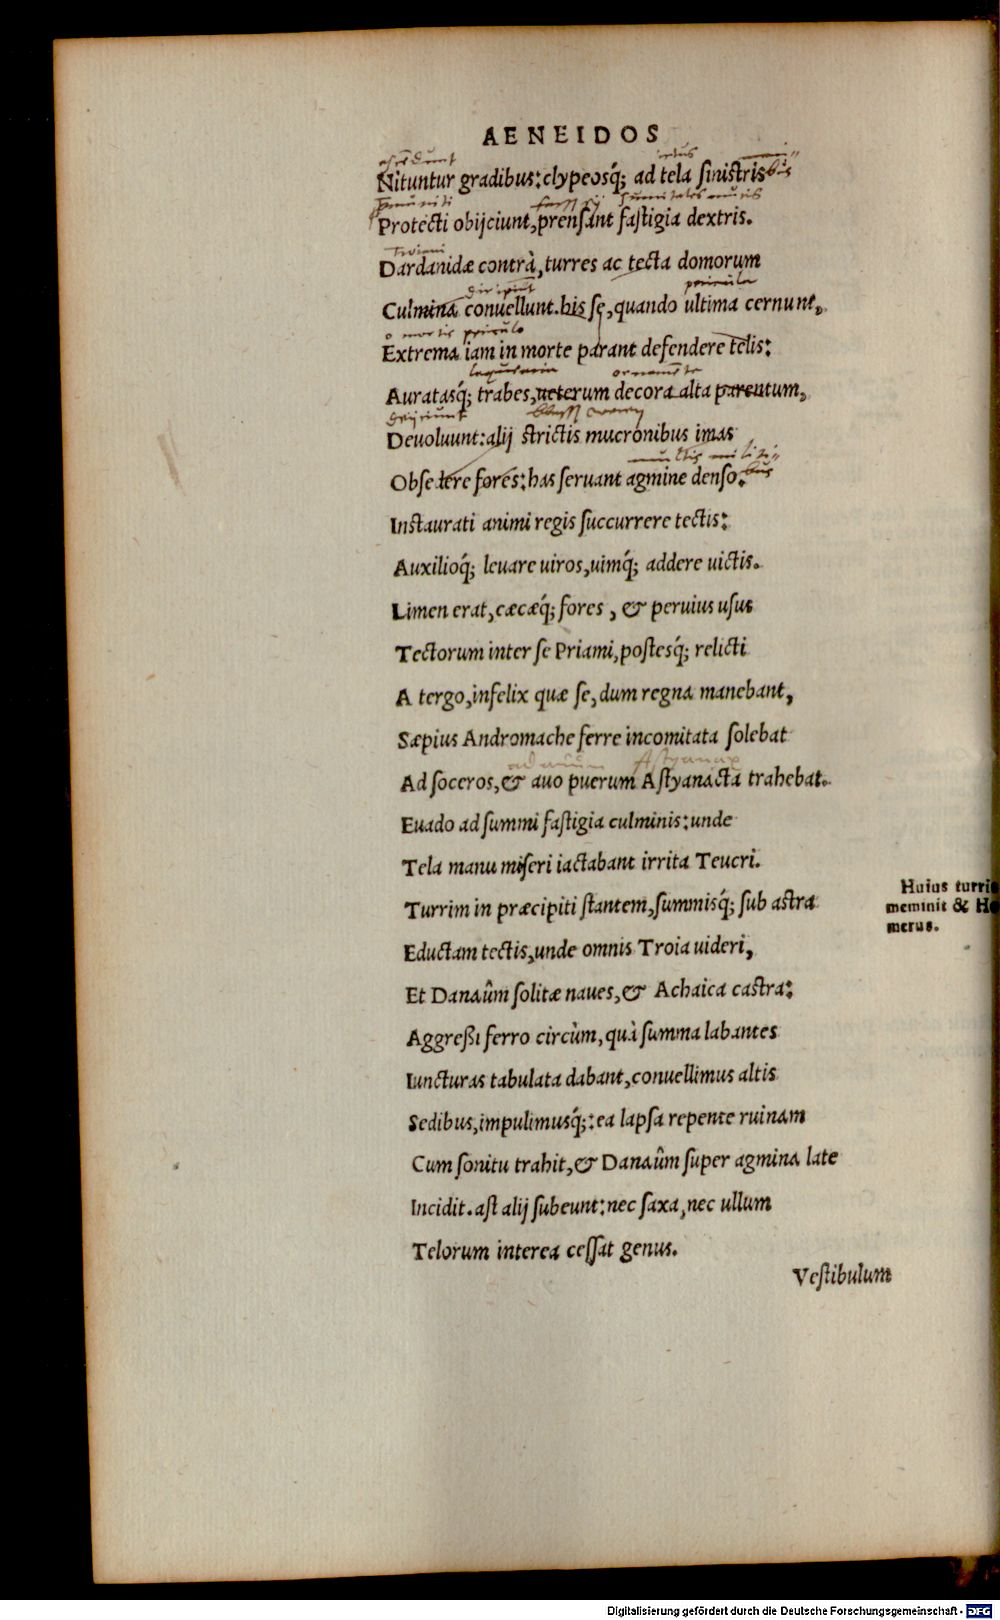 AENEIDOS
Nituntur gradibus: clypeosq́; ad tela sinistris
Protecti obijciunt, prensant fastigia dextris.
Troiani
Dardanidæ contrà, turres ac tecta domorum
diripiũt pericula
Culmina conuellunt. bis se, quando ultima cernunt,
o mortis periculo
Extrema iam in morte parant defendere telis:
laquearia ornamẽta
Auratasq́; trabes, ueterum decora alta parentum,
deijciunt
Deuoluunt: alij strictis mucronibus imas
multis militi-
bus
Obsedere fores: has seruant agmine denso.
Instaurati animi regis succurrere tectis:
Auxilioq́; leuare uiros, uimq́; addere uictis.
Limen erat, cæcæq́; fores, & peruius usus
Tectorum inter se Priami, postesq́; relicti
A tergo, infelix quæ se, dum regna manebant,
Sæpius Andromache ferre incomitata solebat
ad auum Astyanax
Ad soceros, & auo puerum Astyanacta trahebat.
Euado ad summi fastigia culminis: unde
Tela manu miseri iactabant irrita Teucri.
Turrim in præcipiti stantem, summisq́; sub astra
Eductam tectis, unde omnis Troia uideri,
Et Danaûm solitæ naues, & Achaica castra:
Aggreßi ferro circùm, quà summa labantes
Iuncturas tabulata dabant, conuellimus altis
Sedibus, impulimusq́;: ea lapsa repente ruinam
Cum sonitu trahit, & Danaûm super agmina late
Incidit. ast alij subeunt: nec saxa, nec ullum
Telorum interea cessat genus.
Vestibulum
Huius turris
meminit & Ho
merus.
Digitalisierung gefördert durch die Deutsche Forschungsgemeinschaft - DFG